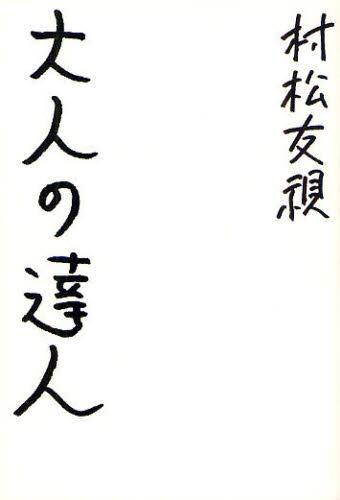 村松友視
大人の達人